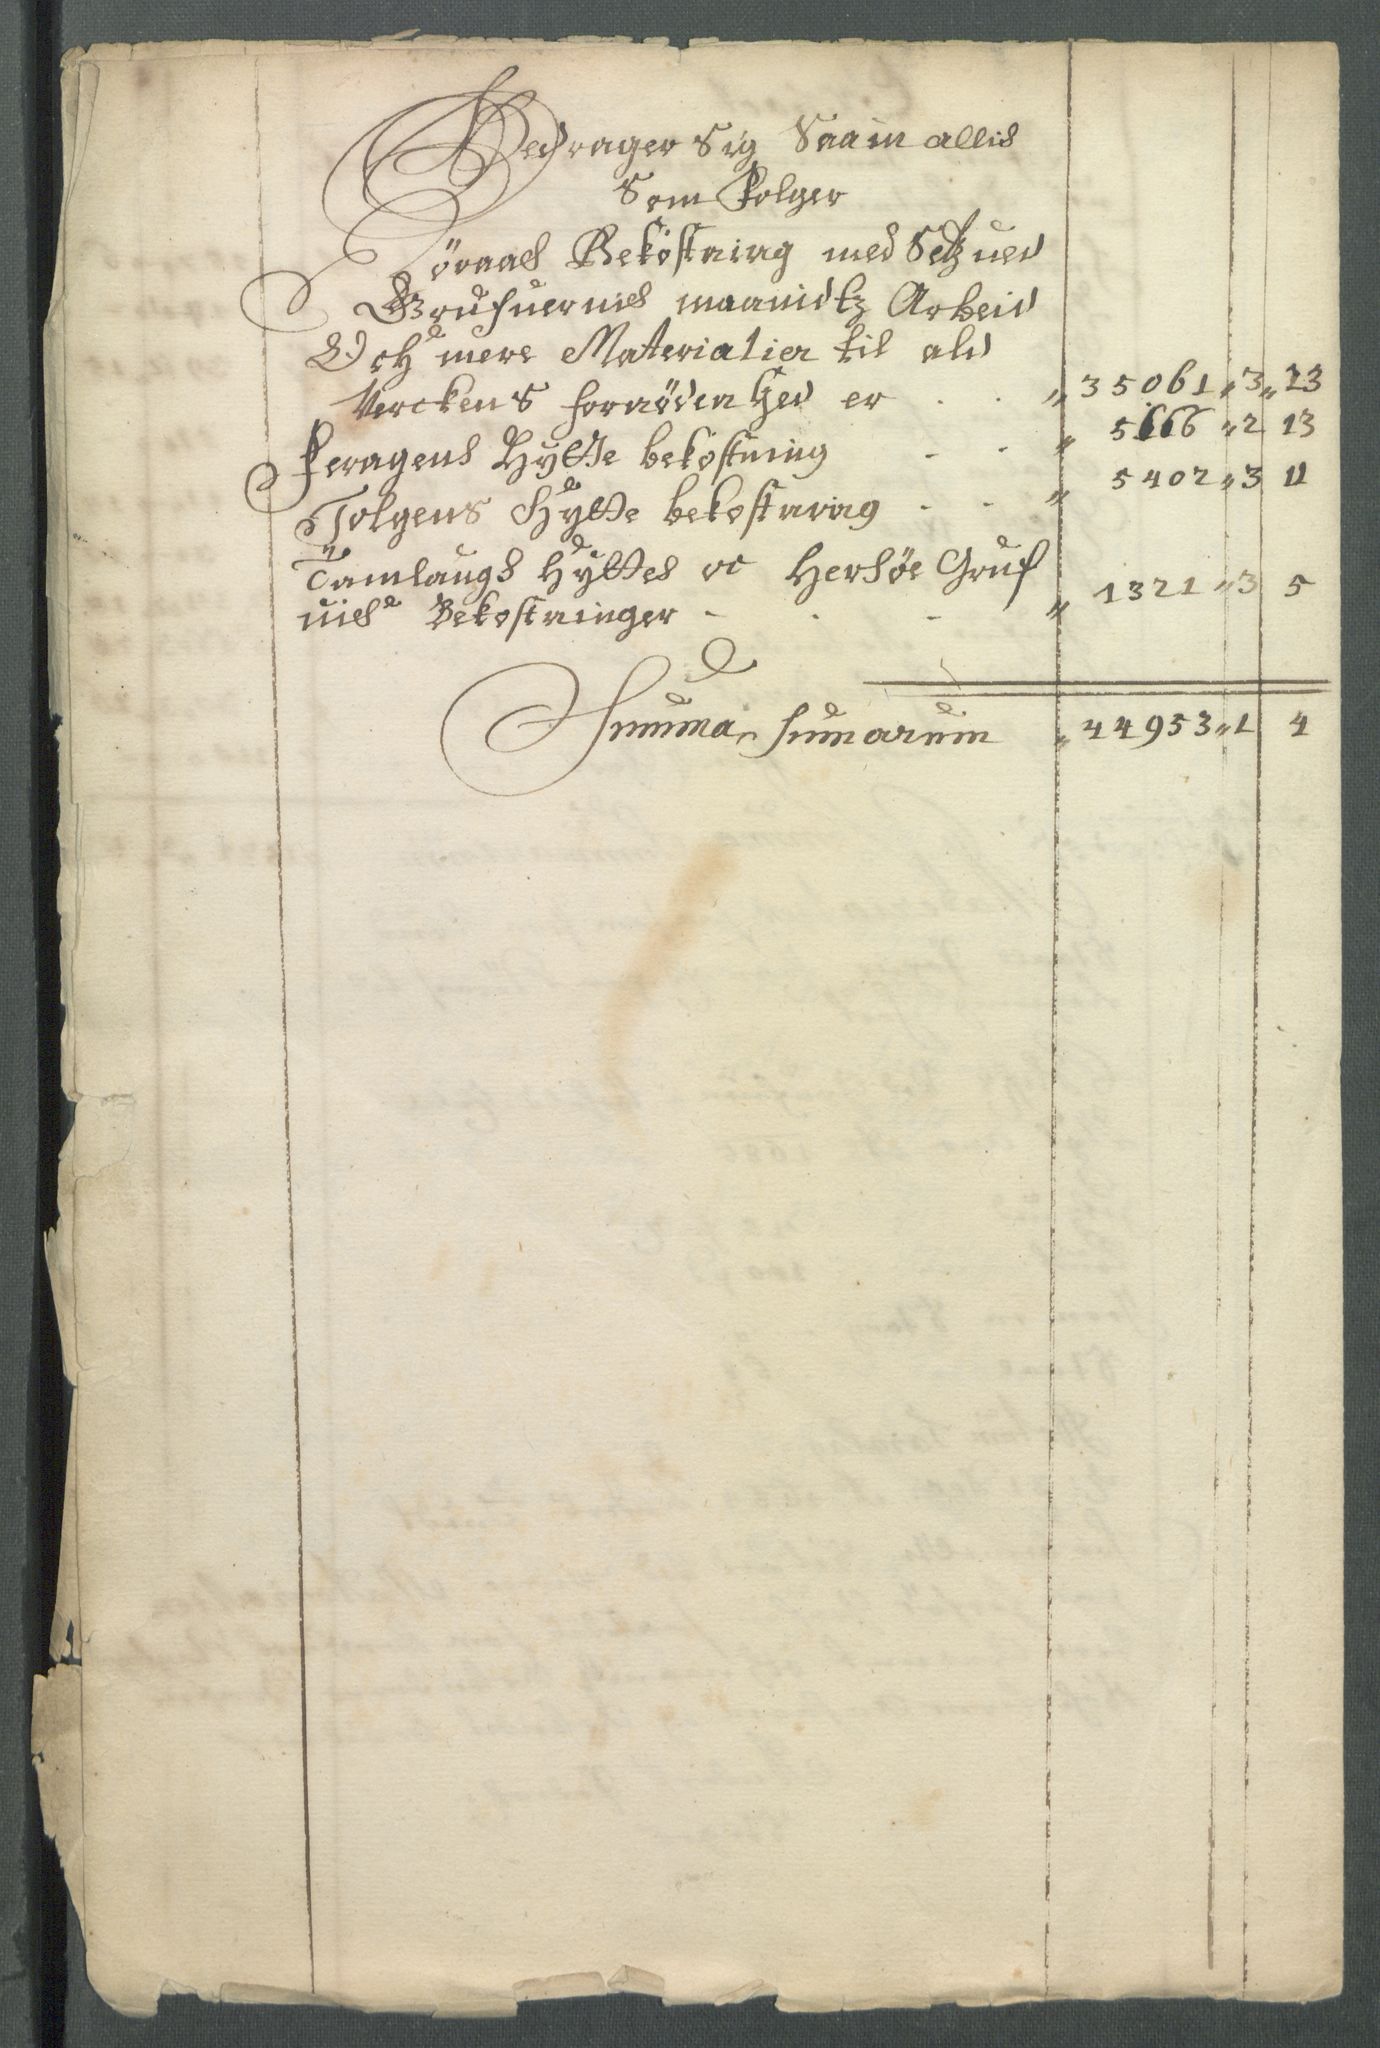 Bedrager Sig Saa in allis
Som Folger
Röraas Bekostning med Setzued
Grufuernis maanidtz Arbeid
Och mere Materialier til ald
Verckens fornødenhed er . . " 35061 " 3 " 23
Feragens Hytte bekostning . . " 3166 " 2 13
Tolgens Hytte bekostning . . " 5402 " 3 11
Tamlaugs Hyttes oc Hersöe Gruf
nis Bekostninger . . . " 1321 " 3 5
Summa sumarum " 44953 " 1 4